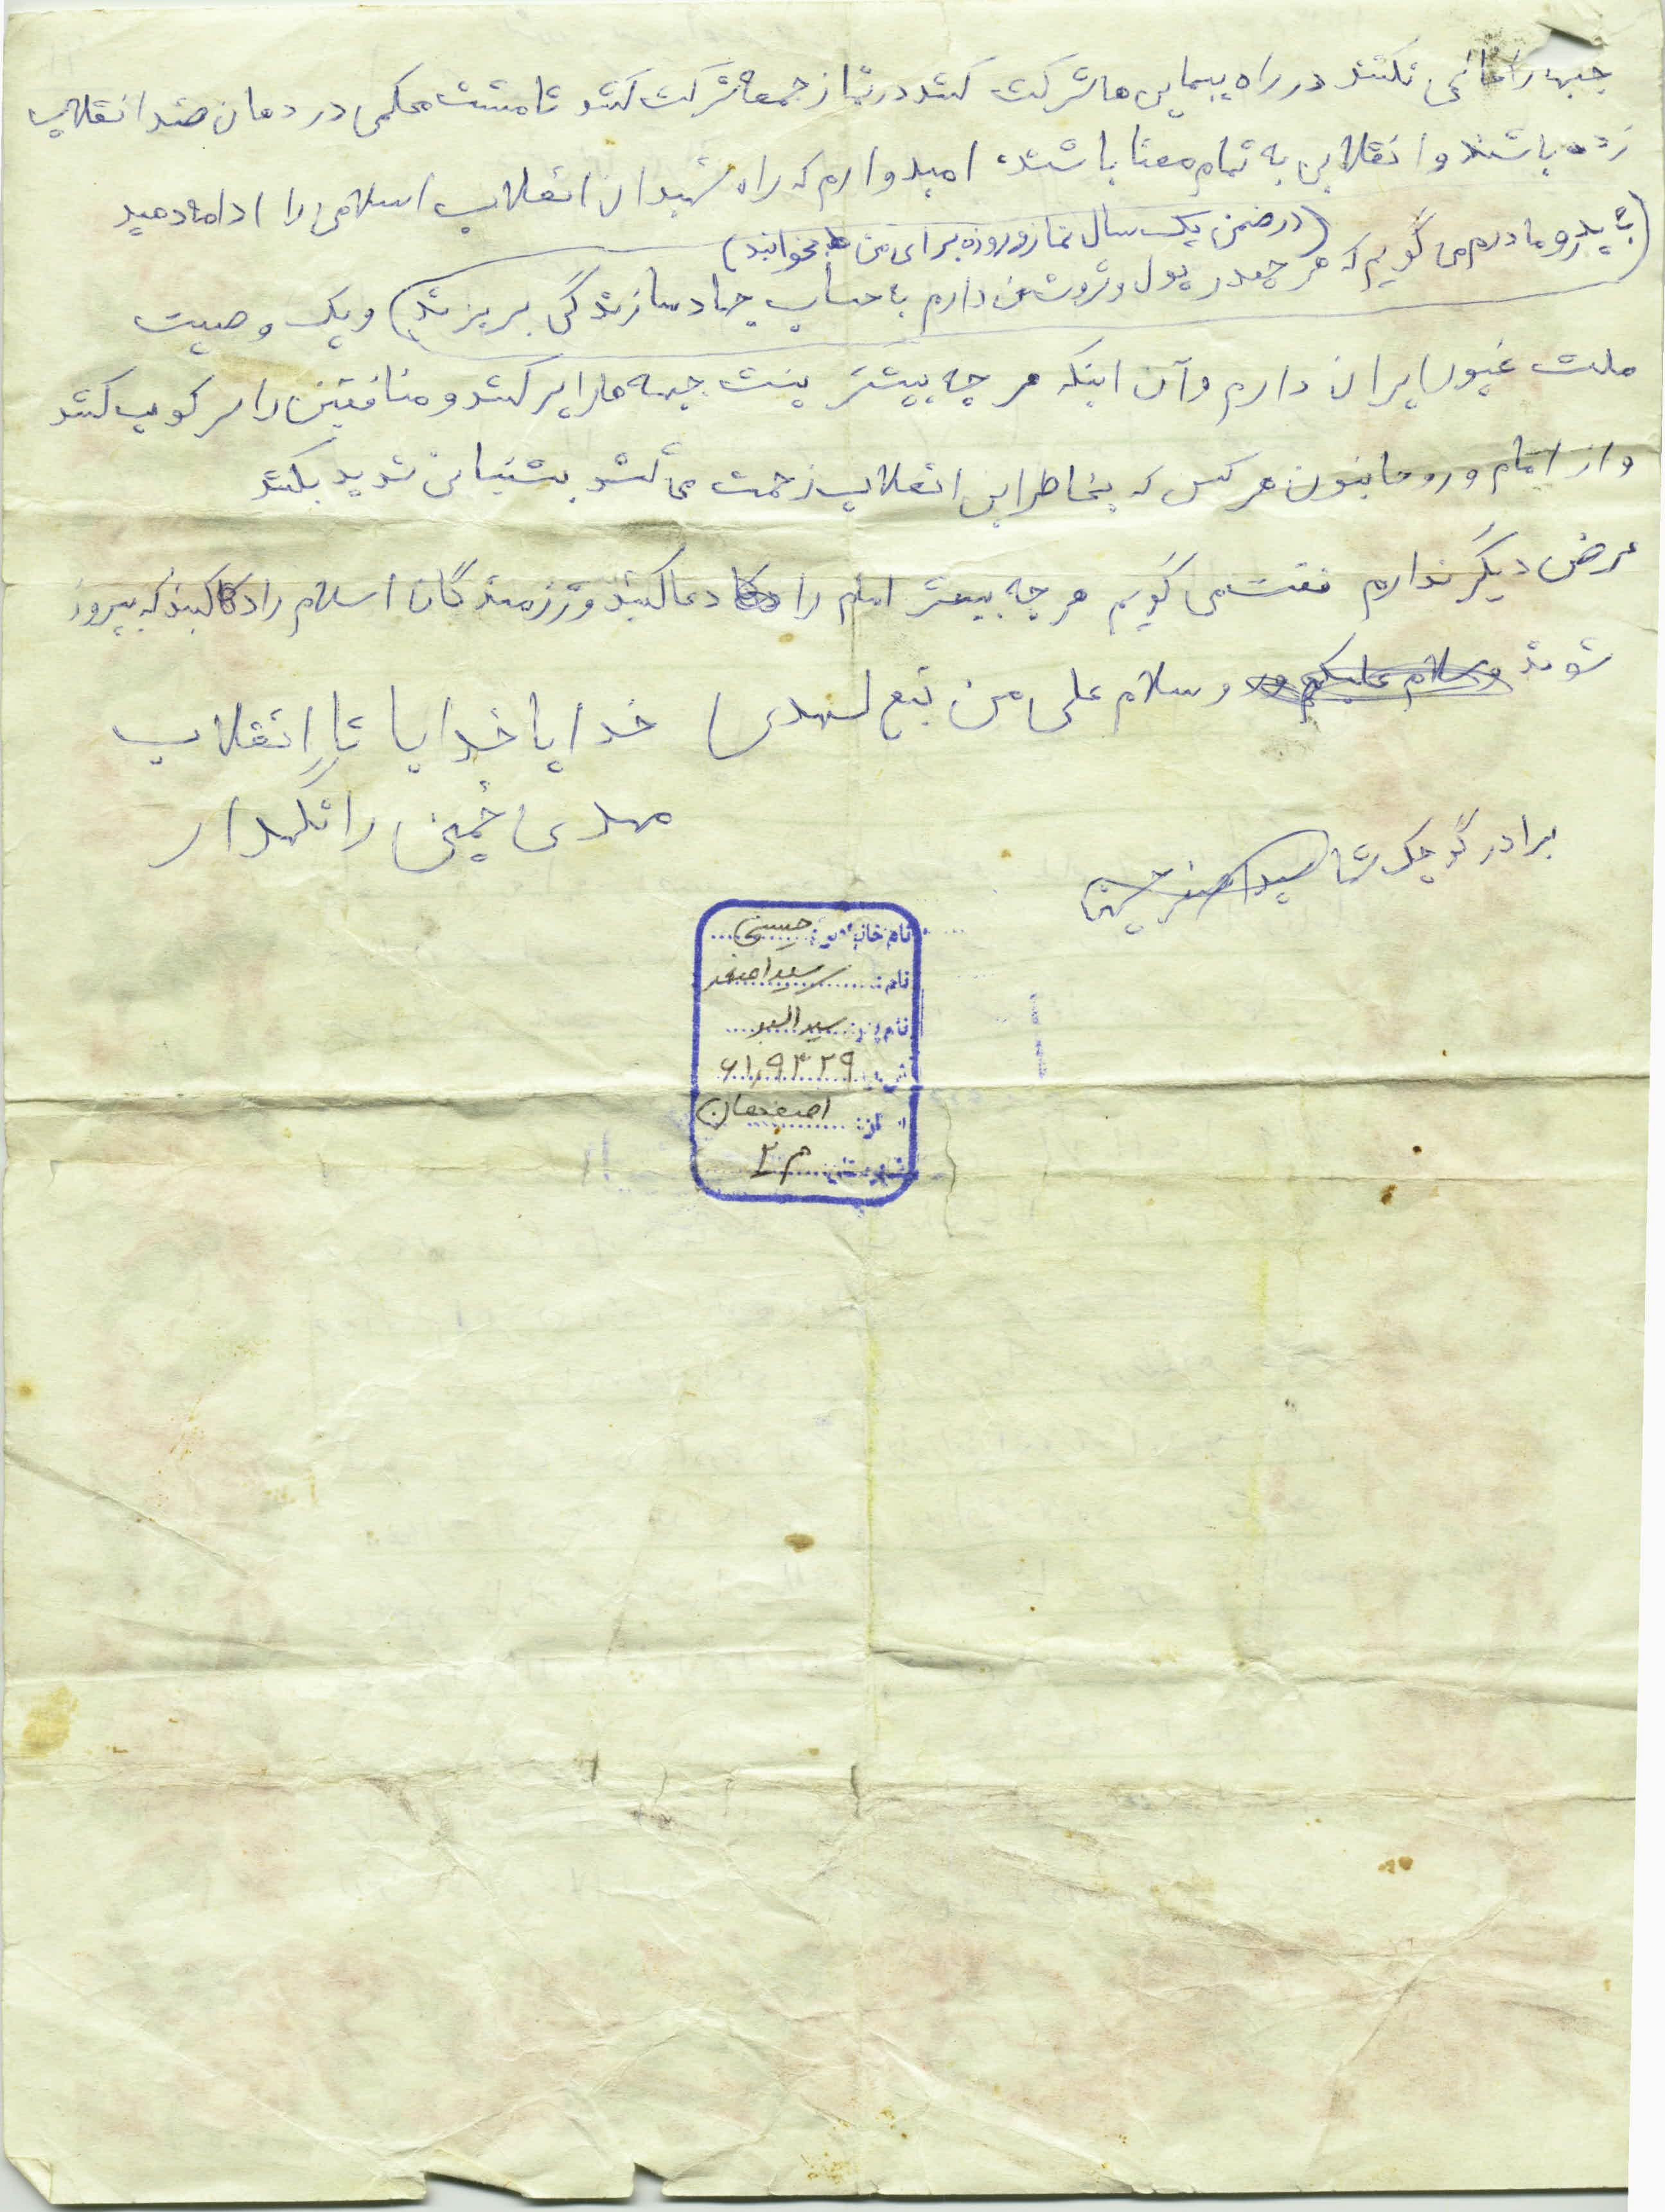 جبهه را خالی نکنند در راه پیمایی ها شرکت کنند در نماز جمعه شرکت کنند تا مشت محکمی در دهان ضد انقلاب
زده باشند و انقلابی به تمام معنا باشند، امیدوارم که راه شهیدان انقلاب اسلامی را ادامه دهید
(در ضمن یک سال نماز و روزه برای من بخوانید)
(به پدر و مادرم می گویم که هر چقدر پول و ثروت من دارم به حساب جهاد سازندگی بریزند) و یک وصیت
ملت غیور ایران دارم و آن اینکه هر چه بیشتر پشت جبهه ها را پر کنند و منافقین را سرکوب کنند
و از امام و روحانیون هر کس که بخاطر این انقلاب زحمت می کشد پشتیبانی شدید بکنند
عرض دیگر ندارم فقت می گویم هر چه بیشتر امام را دعا کنید و رزمندگان اسلام را دعا کنید که پیروز
شوند وسلام علیکم و وسلام علی من تبع لهدی خدایا خدایا تا انقلاب
مهدی خمینی را نگهدار
برادر کوچک شما سید اصغر حسینی
نام خانوادگی: حسینی
نام: سید اصغر
نام پدر: سید اکبر
ش: ۶۱٫۹۳۲۹
از: اصفهان
م ۲